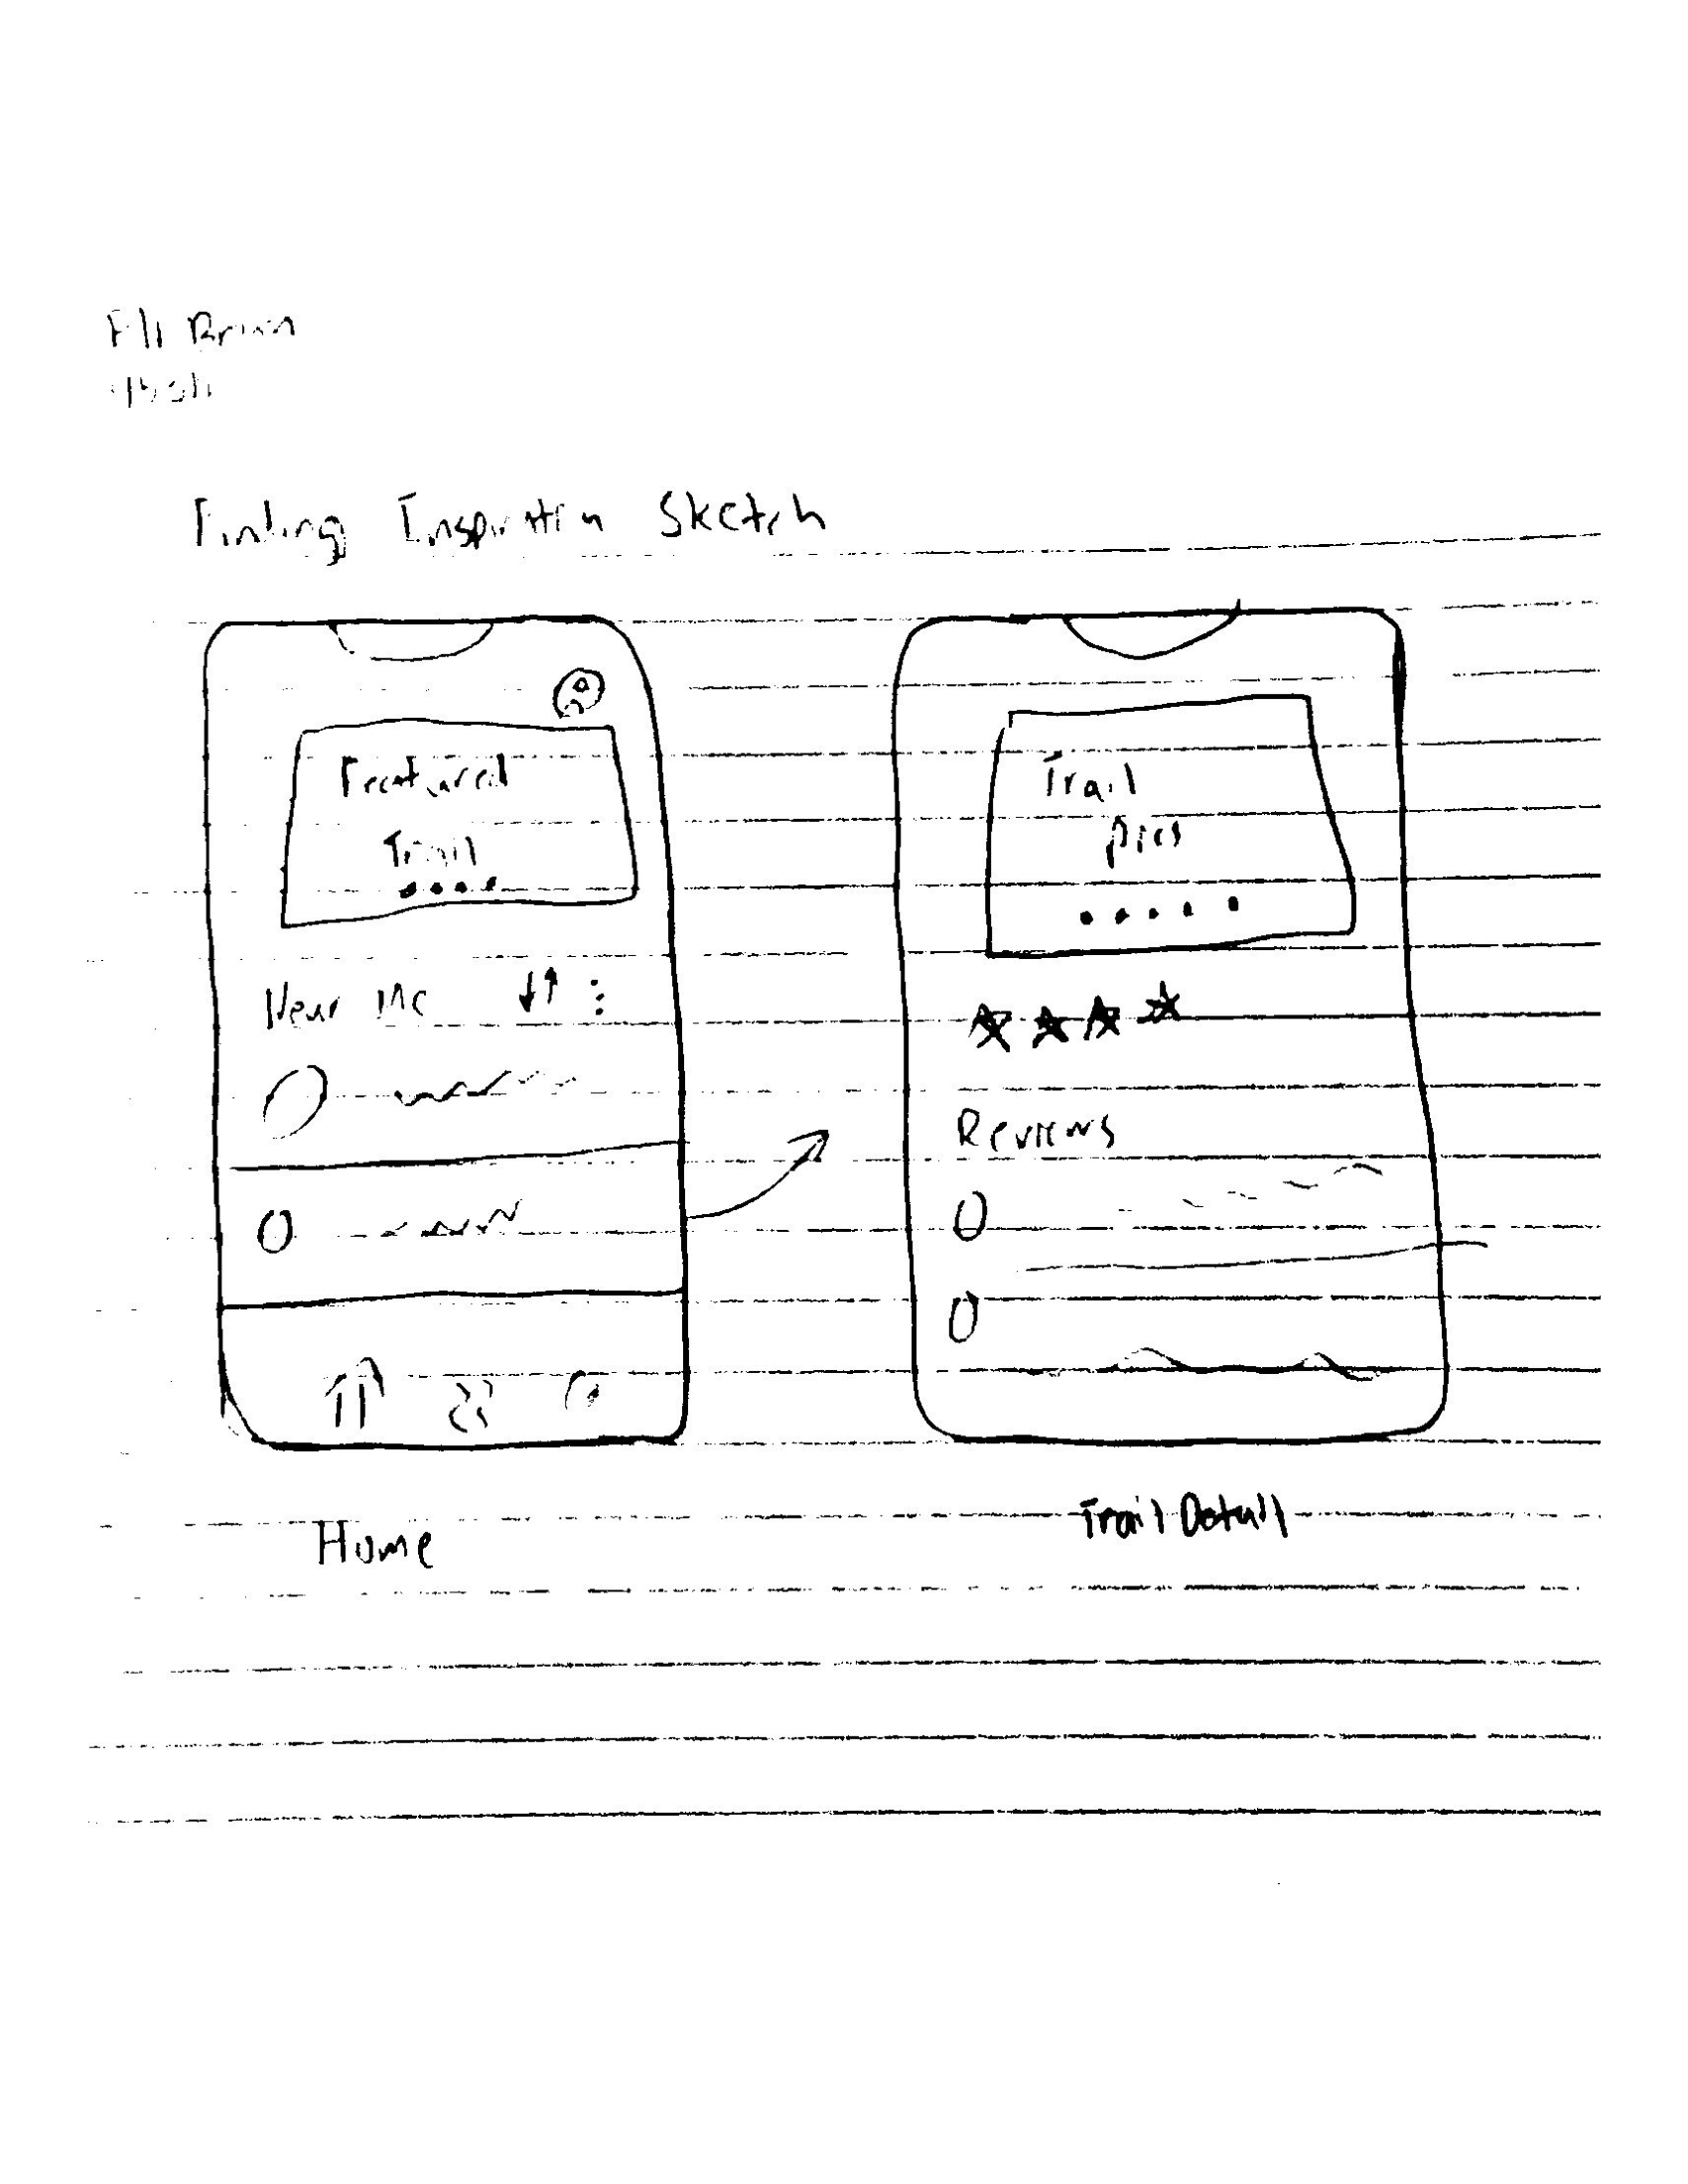 Eli Brown
Finding Inspiration Sketch
Featured
Trail
Near Me
Home
Trail
pics
Reviews
Trail Detail